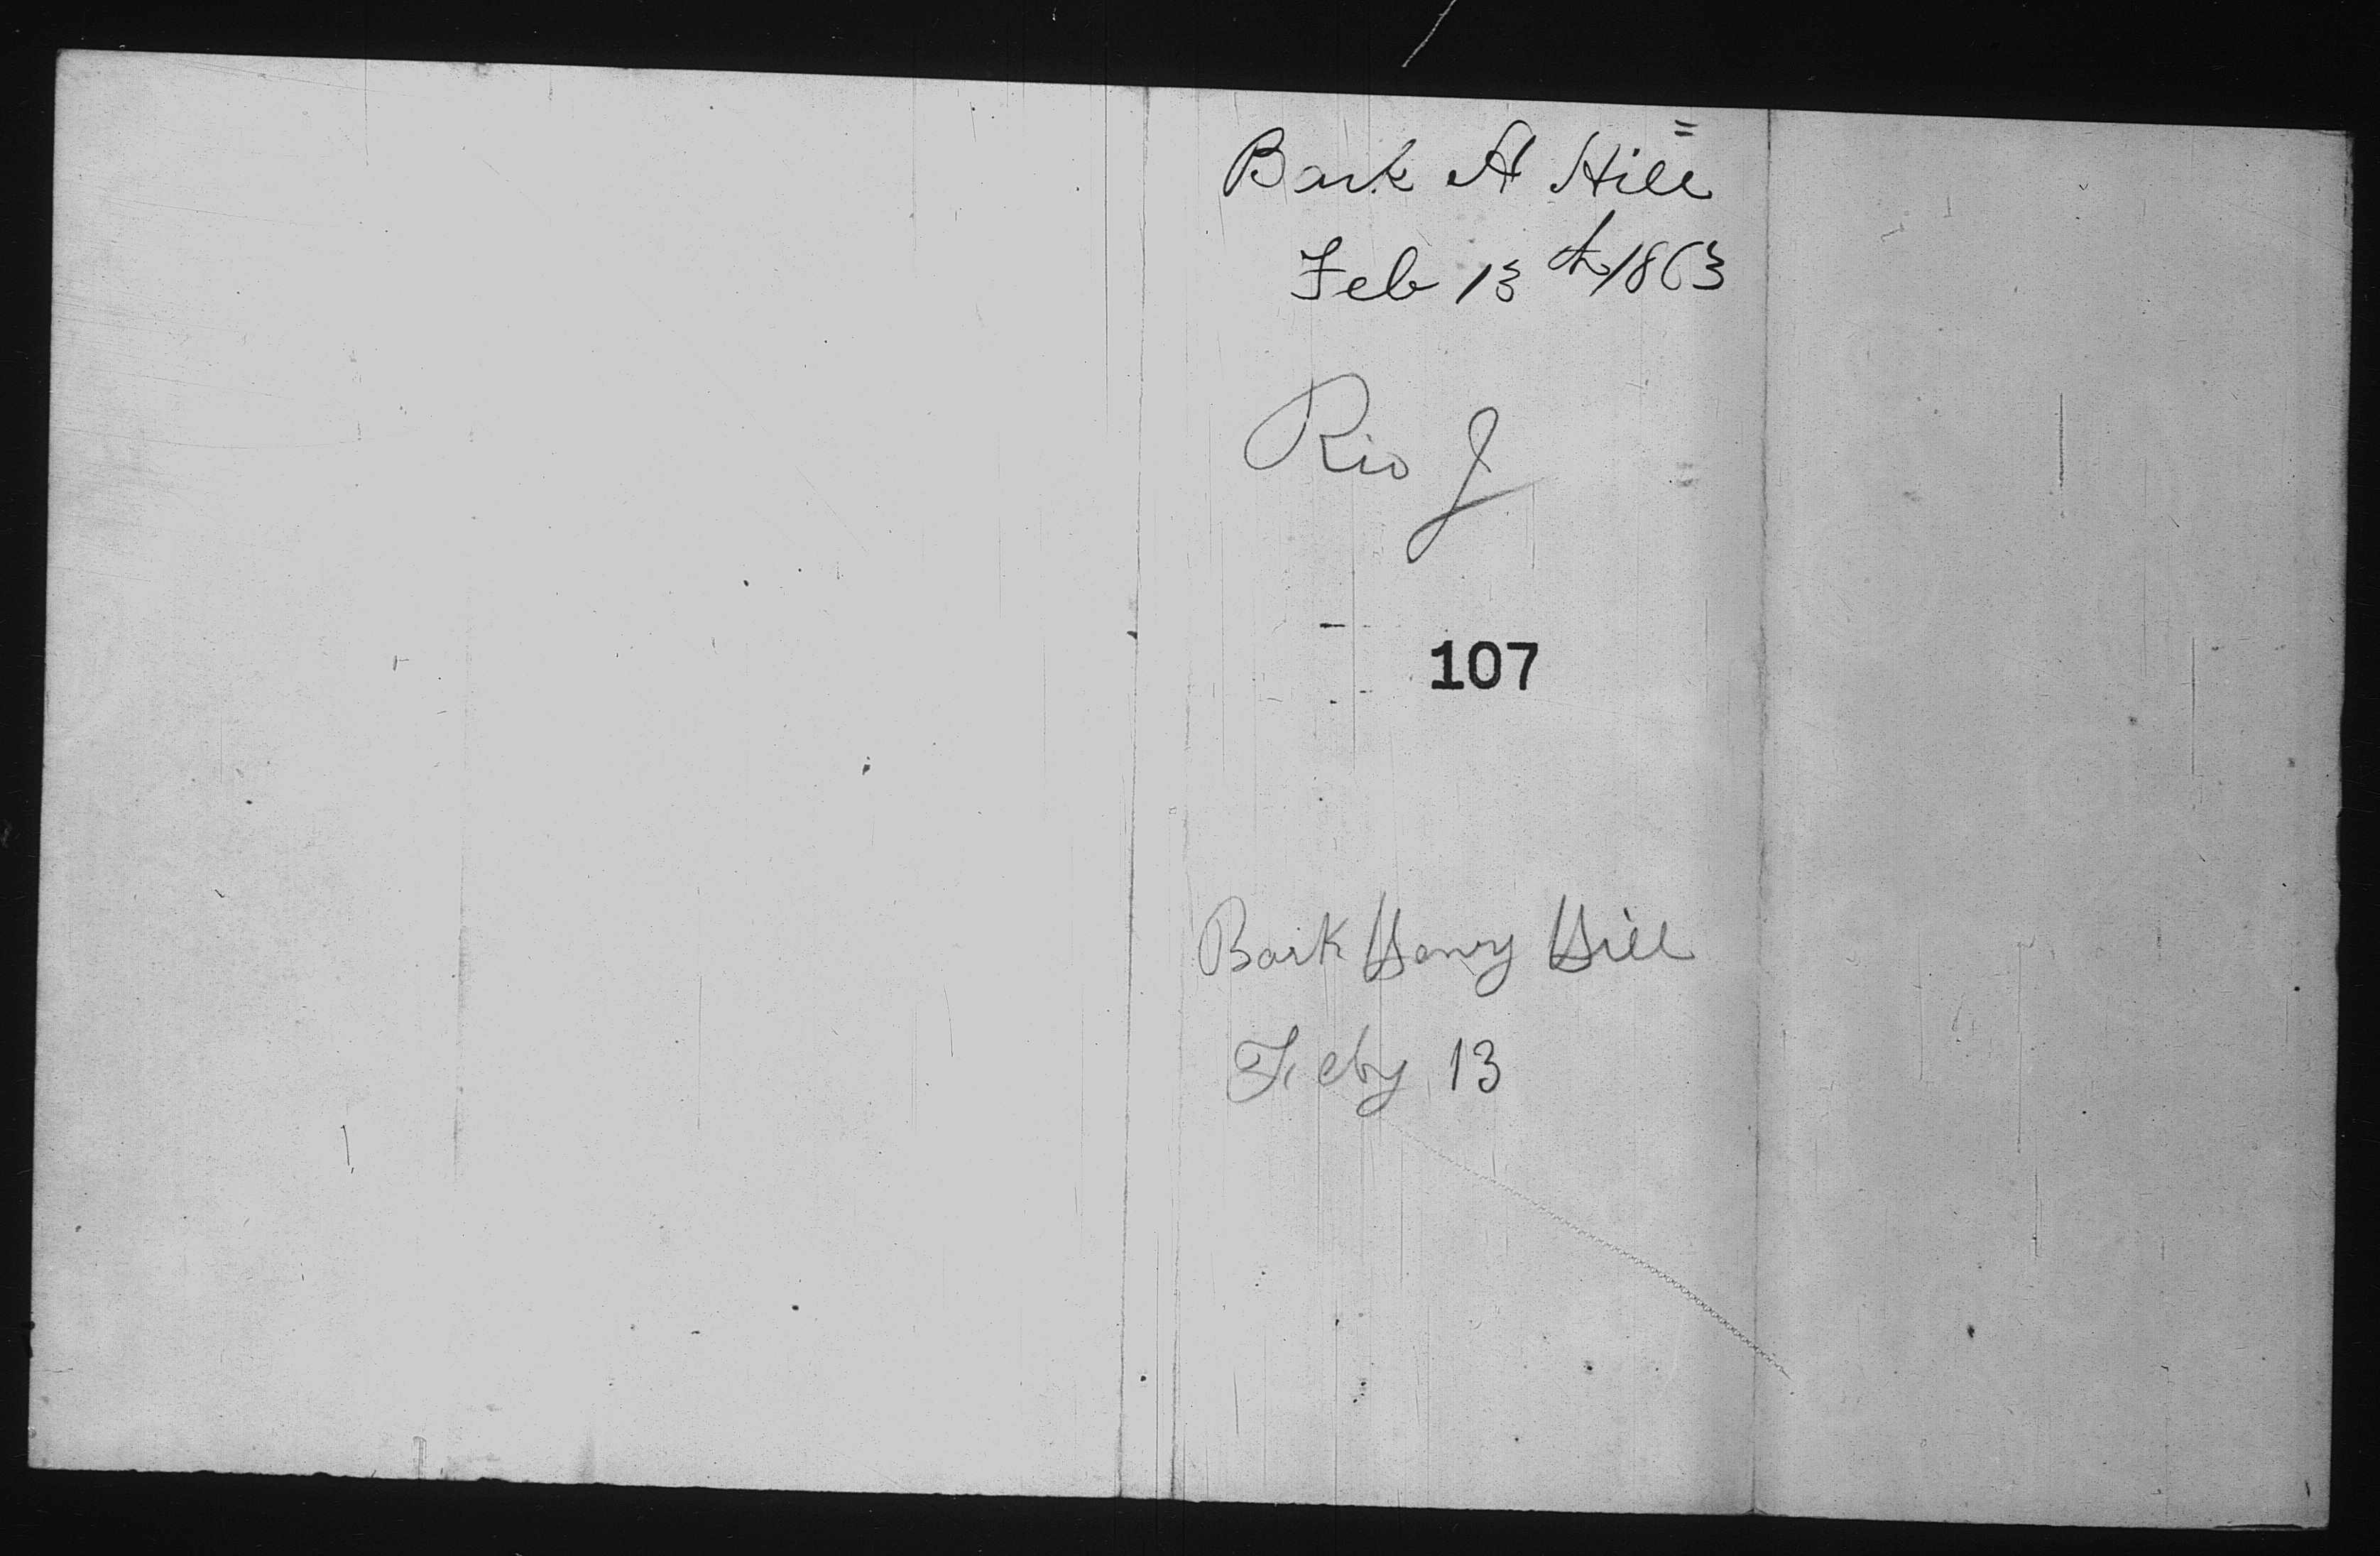 Bark H Hill
Feb 13th 1863
Rio J
107
Bark Henry Hill
Feby 13